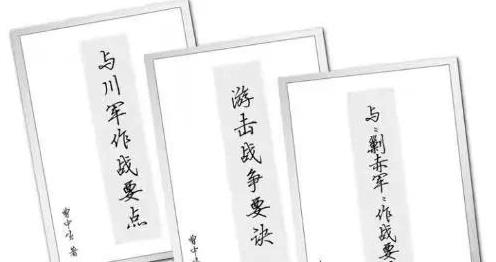 与川军作战要点
曾中生 著
游击战争要诀
曾中生
与"剿赤军"作战要